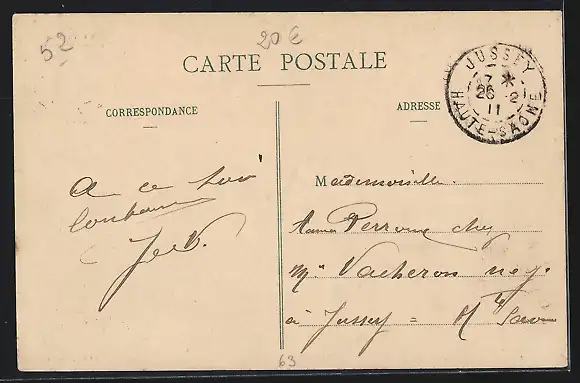 52
20€
CARTE POSTALE
JUSSEY
7 *
26 -2
11
HAUTE-SAÔNE
CORRESPONDANCE
ADRESSE
A ce soir
JeV.
Mademoiselle.
Perron chez
Mr Vacheron neg.
à Jussey = Hte Saône
63